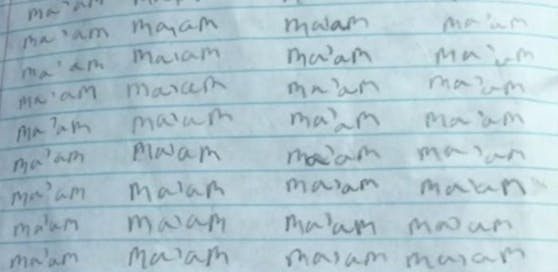 ma'am
ma'am ma,am ma'am ma'am
ma'am ma'am ma'am ma'am
ma'am ma'am ma'am ma'am
ma'am ma'am ma'am ma'am
ma'am ma'am ma'am ma'am
ma'am ma'am ma'am ma'am
ma'am ma'am ma'am ma'am
ma'am ma'am ma'am ma'am